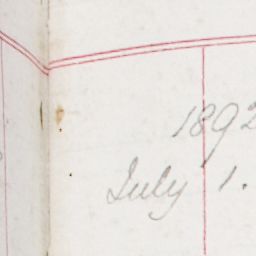 1892
July 1.